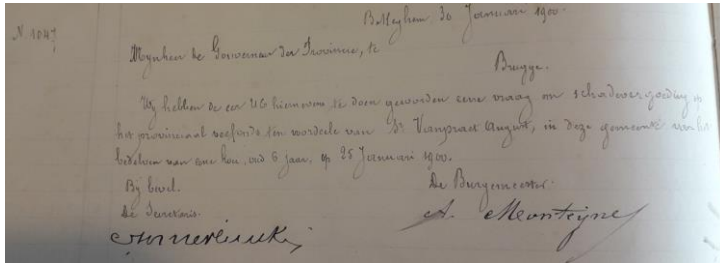 Belleghem 30 Januari 1900.
N. 1047
Mijnheer de Gouverneur der Provincie, te
Brugge.
Wij hebben de eer UE hiernevens te doen geworden eene vraag om schadevergoeding op
het provinciaal veefonds ten voordeele van Sr Vanpraet August, in deze gemeente voor het
bedelven van eene koe, oud 6 jaar, op 25 Januari 1900.
Bij bevel.
De Burgemeester.
De Secretaris.
A. Monteyne